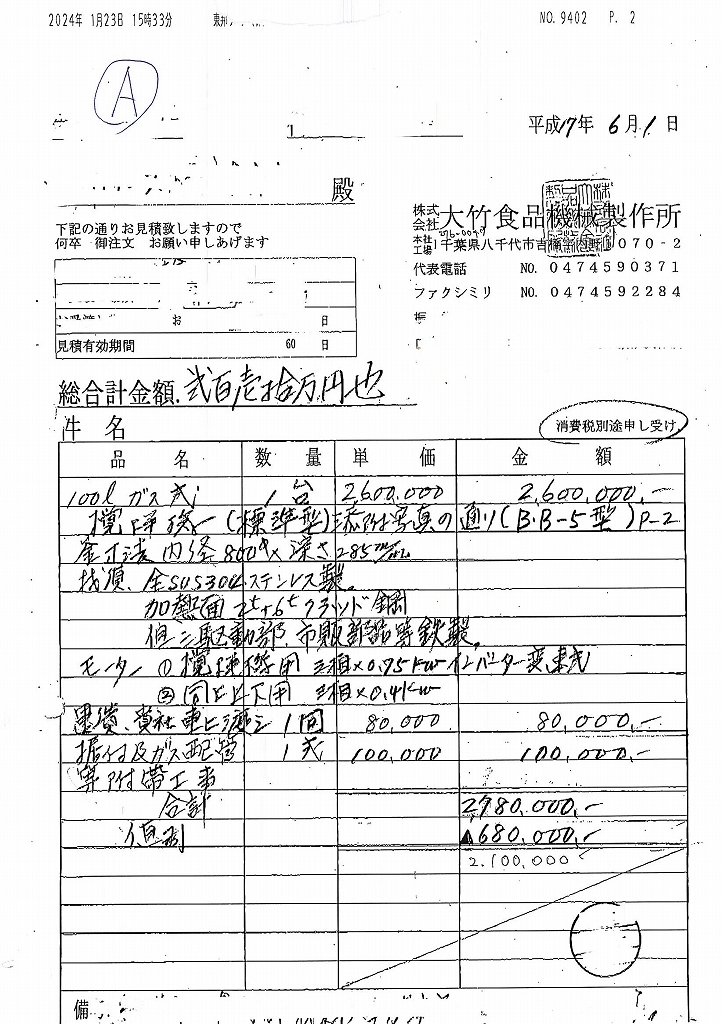 2024年 1月23日 15時33分 NO.9402 P. 2
A
平成17年 6月1日
殿
下記の通りお見積致しますので
何卒 御注文 お願い申しあげます
株式会社 大竹食品機械製作所
276-0049
本社工場 千葉県八千代市吉橋字内野1070-2
代表電話 NO. 0474590371
ファクシミリ NO. 0474592284
お 日
見積有効期間 60 日
総合計金額. 弐百壱拾万円也
件 名
消費税別途申し受け
品 名 数 量 単 価 金 額
100l ガス式 1台 2,600,000 2,600,000,-
攪拌機ー(標準型)添附写真の通り(B.B-5型)P-2
釜寸法 内径800φ×深さ285m/m
材質、全SUS304.ステンレス製。
加熱面 2t+6t クラッド鋼
但シ駆動部、市販部品等鉄製。
モーター ①攪拌機用 三相×0.75kwインバーター変速式
②同上上下用 三相×0.4kw
運賃、貴社車上渡シ 1回 80,000 80,000,-
据付及ガス配管 1式 100,000 100,000,-
等附帯工事
合計 2,780,000,-
値引 ▲680,000,-
2.100,000
備